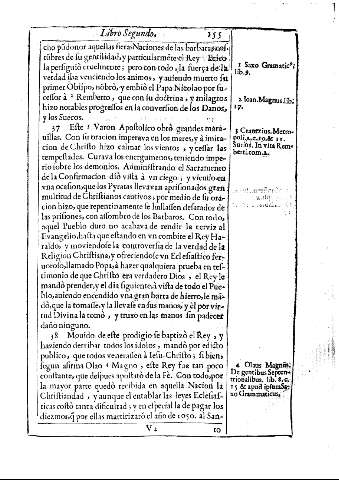 Libro Segundo. 155
cho pudo nor aquellas fieras Naciones de las barbaras cos-
tûbres de su gentilidad, y particularmête el Rey Erico
la persiguió cruelmente; pero con todo, la fuerça de la
verdad iba venciendo los animos, y auiendo muerto su
primer Obispo, nôbró, y embió el Papa Nicolao por su-
cessor à ² Remberto, que con su doctrina, y milagros
hizo notables progressos en la conuersion de los Danos,
y los Suecos.
37 Este ³ Varon Apostolico obró grandes maraui-
uillas. Con su oracion imperaua en los mares, y à imita-
cion de Christo hizo calmar los vientos, y cessar las
tempestades. Curaua los energumenos, teniendo impe-
rio sobre los demonios. Administrando el Sacramento
de la Confirmacion dió vista à vn ciego, y viendo en
vna ocasion, que los Pyratas lleuauan aprisionados gran
multitud de Christianos cautiuos, por medio de su ora-
cion hizo, que repentinamente se hallassen desatados de
las prisiones, con assombro de los Barbaros. Con todo,
aquel Pueblo duro no acabaua de rendir la ceruiz al
Euangelio, hasta que estando en vn combite el Rey Ha-
raldo, y mouiendose la controuersia de la verdad de la
Religion Christiana, y ofreciendose vn Eclesiastico fer-
uoroso, llamado Popa, à hazer qualquiera prueba en tes-
timonio de que Christo era verdadero Dios, el Rey le
mandó prender, y el dia siguiente, à vista de todo el Pue-
blo, auiendo encendido vna gran barra de hierro, le mâ-
dò, que la tomasse, y la lleuasse en sus manos, y él por vir-
tud Diuina la tomó, y truxo en las manos sin padecer
daño ninguno.
38 Mouido de este prodigio se baptizó el Rey, y
haziendo derribar todos los idolos, mandó por edicto
publico, que todos venerassen à Iesu-Christo; si bien
segun afirma Olao ⁴ Magno, este Rey fue tan poco
constante, que despues apostatò de la Fé. Con todo, por
la mayor parte quedó recibida en aquella Nacion la
Christiandad, y aunque el entablar las leyes Eclesias-
ticas costó tanta dificultad, y en especial la de pagar los
diezmos, q̃ por ellas martirizaró el año de 1050. al San-
V 2 to
1 Saxo Gramatic⁹.
lib. 9.
2 Ioan. Magnus lib.
17.
3 Crantzius. Metro-
Surius. In vita Rem-
berti com. 1.
4 Olaus Magnus.
De gentibus Septen-
trionalibus. lib. 8. c.
15 & apud ipsum Sa-
xo Grammaticus.